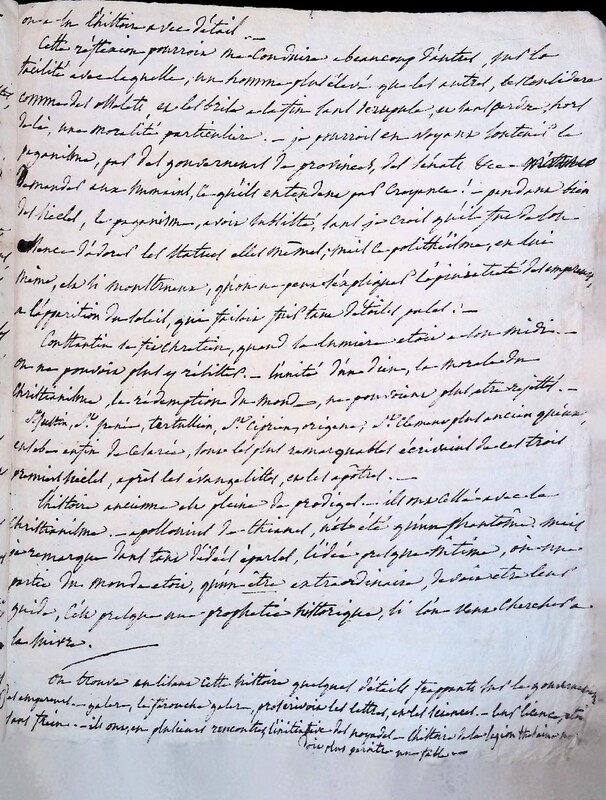 on a lu l'histoire avec détail —
Cette réflexion pourroit me conduire a beaucoup d'autres, sur la
facilité avec laquelle, un homme plus élevé que les autres, les considère
comme des et les brise a la fin sans scrupule, et sans perdre, hors
de là, une moralité particulier. — je pourrois en voyant soutenir le
paganisme, par des gouverneurs de provinces, des sénats &c —
demander aux humains, ce qu'ils entendent par croyance! — pendant bien
des siècles, le paganisme, avoit subsisté, sans je crois qu'il fut de
d'adorer les statues elles mêmes; mais le polithéïsme, en lui
même, est si monstrueux, qu'on ne peut s'expliquer des empereurs,
a l'apparition du soleil, qui faisoit fuir tant d'étoiles pales! —
Constantin se fit chretien, quand la lumière etoit a son midi. —
on ne pouvoit plus y résister. — l'unité d'un dieu, la morale du
christianisme, la rédemption du monde, ne pouvoient plus etre rejettés. —
St. Justin, St. irenée, tertullien, St. Ciprien, origene; St. Clément plus ancien qu'eux,
eusebe enfin de Césarée, tous les plus remarquables écrivains de ces trois
premiers siècles, après les évangelistes, et les apôtres. —
l'histoire ancienne est pleine de prodiges — ils ont cessé avec le
christianisme. — apollonius de thianes, n'ote été qu'un phantôme. mais
je remarque dans tant d'idées éparses, l'idée presque intime, où une
partie du monde etoit, qu'un etre extraordinaire, devoit etre leur
guide, c'est presque une prophetie historique, si l'on veut chercher a
la suivre.
On trouve en lisant cette histoire quelques détails frappants sur le gouvernement
des empereurs. — galere, le farouche galere, proscrivoit les lettres, et les sciences. — leur licence, etoit
sans frein. — ils ont, en plusieurs rencontres, des noyades — l'histoire de la legion thebaine
plus qu'une fable —